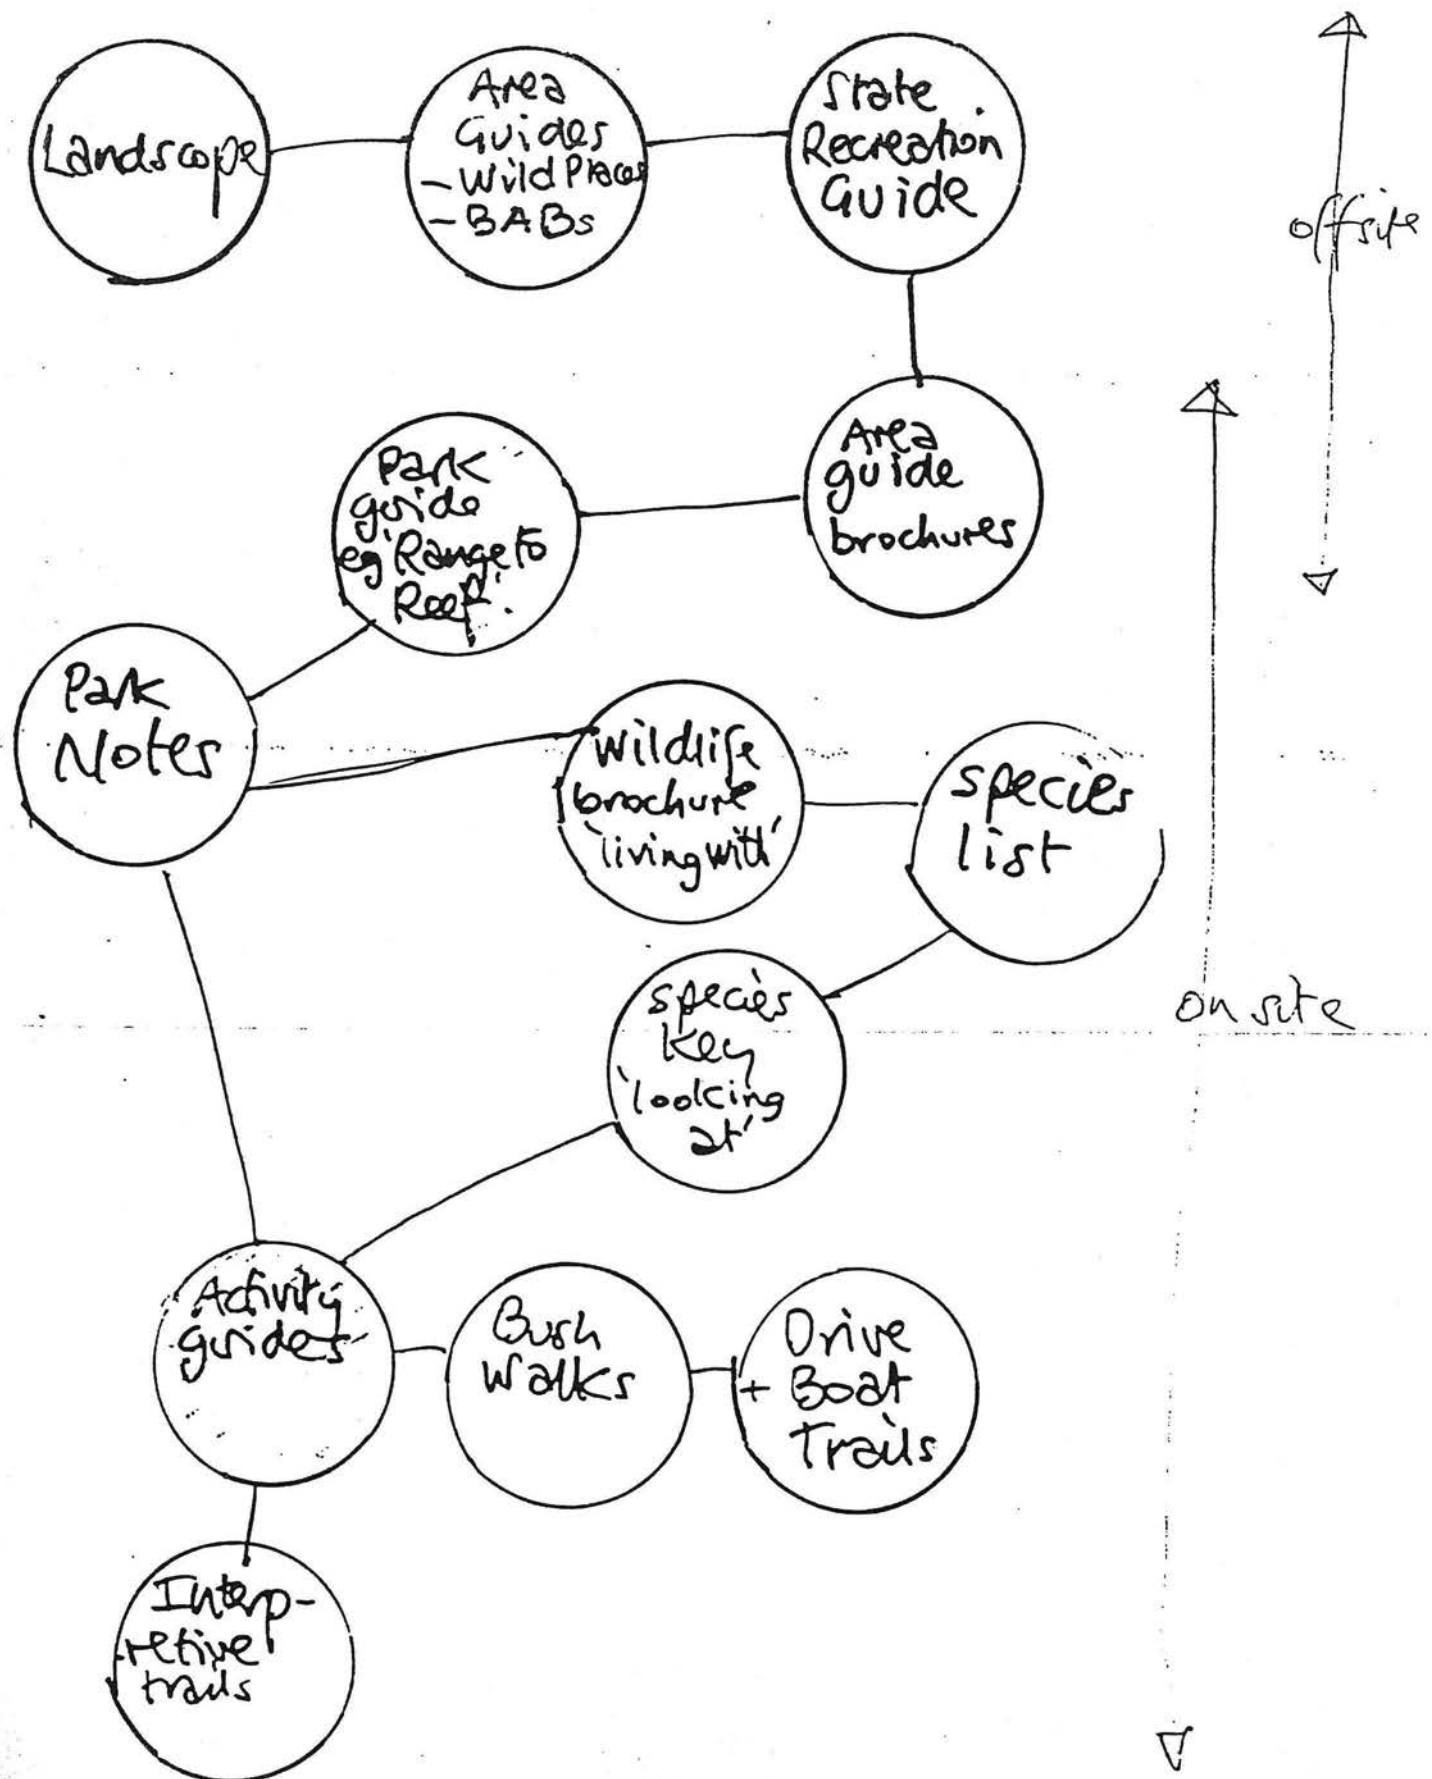 Landscope
Area
Guides
- Wild Places
- BABs
State
Recreation
Guide
offsite
Park
guide
eg 'Range to
Reef'.
Area
guide
brochures
Park
Notes
Wildlife
brochure
'living with'
species
list
species
key
'looking
at'
on site
Activity
guides
Bush
Walks
Drive
+ Boat
Trails
Interp-
retive
trails